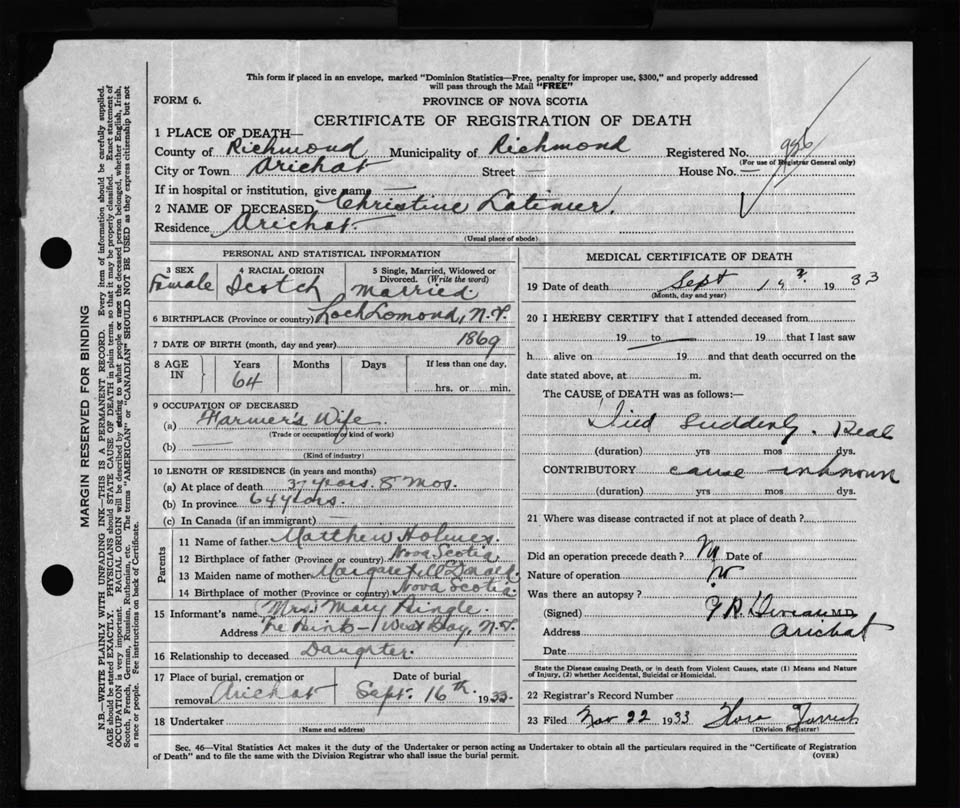 This form if placed in an envelope, marked "Dominion Statistics—Free, penalty for improper use, $300," and properly addressed
will pass through the Mail "FREE"
FORM 6.
PROVINCE OF NOVA SCOTIA
CERTIFICATE OF REGISTRATION OF DEATH
1 PLACE OF DEATH—
County of Richmond Municipality of Richmond Registered No. 996
(For use of Registrar General only)
City or Town Arichat Street — House No. —
If in hospital or institution, give name —
2 NAME OF DECEASED Christine Latimer.
Residence Arichat.
(Usual place of abode)
PERSONAL AND STATISTICAL INFORMATION
3 SEX Female
4 RACIAL ORIGIN Scotch
5 Single, Married, Widowed or Divorced. (Write the word) Married
6 BIRTHPLACE (Province or country) Loch Lomond, N.S.
7 DATE OF BIRTH (month, day and year) 1869
8 AGE IN Years 64 Months Days If less than one day, hrs. or min.
9 OCCUPATION OF DECEASED
(a) Farmer's Wife.
(Trade or occupation or kind of work)
(b) —
(Kind of industry)
10 LENGTH OF RESIDENCE (in years and months)
(a) At place of death 3 years. 8 Mos.
(b) In province 64 years.
(c) In Canada (if an immigrant) —
Parents
11 Name of father Matthew Holmes.
12 Birthplace of father (Province or country) Nova Scotia.
13 Maiden name of mother Margaret
14 Birthplace of mother (Province or country) Nova Scotia.
15 Informant's name Mrs. Mary Pringle.
Address The Points - West Bay, N.S.
16 Relationship to deceased Daughter.
17 Place of burial, cremation or removal Arichat
Date of burial Sept. 16th 1933.
18 Undertaker
(Name and address)
MEDICAL CERTIFICATE OF DEATH
19 Date of death Sept 1933
(Month, day and year)
20 I HEREBY CERTIFY that I attended deceased from
19 to 19 that I last saw
h alive on 19 and that death occurred on the
date stated above, at m.
The CAUSE of DEATH was as follows:—
Died Suddenly. Real
(duration) yrs mos dys.
CONTRIBUTORY cause unknown
(duration) yrs mos dys.
21 Where was disease contracted if not at place of death?
Did an operation precede death? No Date of
Nature of operation
Was there an autopsy? No
(Signed) M.D.
Address Arichat
Date
State the Disease causing Death, or in death from Violent Causes, state (1) Means and Nature
of Injury, (2) whether Accidental, Suicidal or Homicidal.
22 Registrar's Record Number
23 Filed Nov 22 1933 Flora
(Division Registrar)
Sec. 46—Vital Statistics Act makes it the duty of the Undertaker or person acting as Undertaker to obtain all the particulars required in the "Certificate of Registration
of Death" and to file the same with the Division Registrar who shall issue the burial permit.
(OVER)
MARGIN RESERVED FOR BINDING
N.B.—WRITE PLAINLY WITH UNFADING INK—THIS IS A PERMANENT RECORD. Every item of information should be carefully supplied.
AGE should be stated EXACTLY. PHYSICIANS should STATE CAUSE OF DEATH in plain terms, so that it may be properly classified. Exact statement of
OCCUPATION is very important. RACIAL ORIGIN will be described by stating to what people or race the deceased person belonged, whether English, Irish,
Scotch, French, German, Russian, Ruthenian, etc. The terms "AMERICAN" or "CANADIAN" SHOULD NOT BE USED as they express citizenship but not
a race or people. See instructions on back of Certificate.